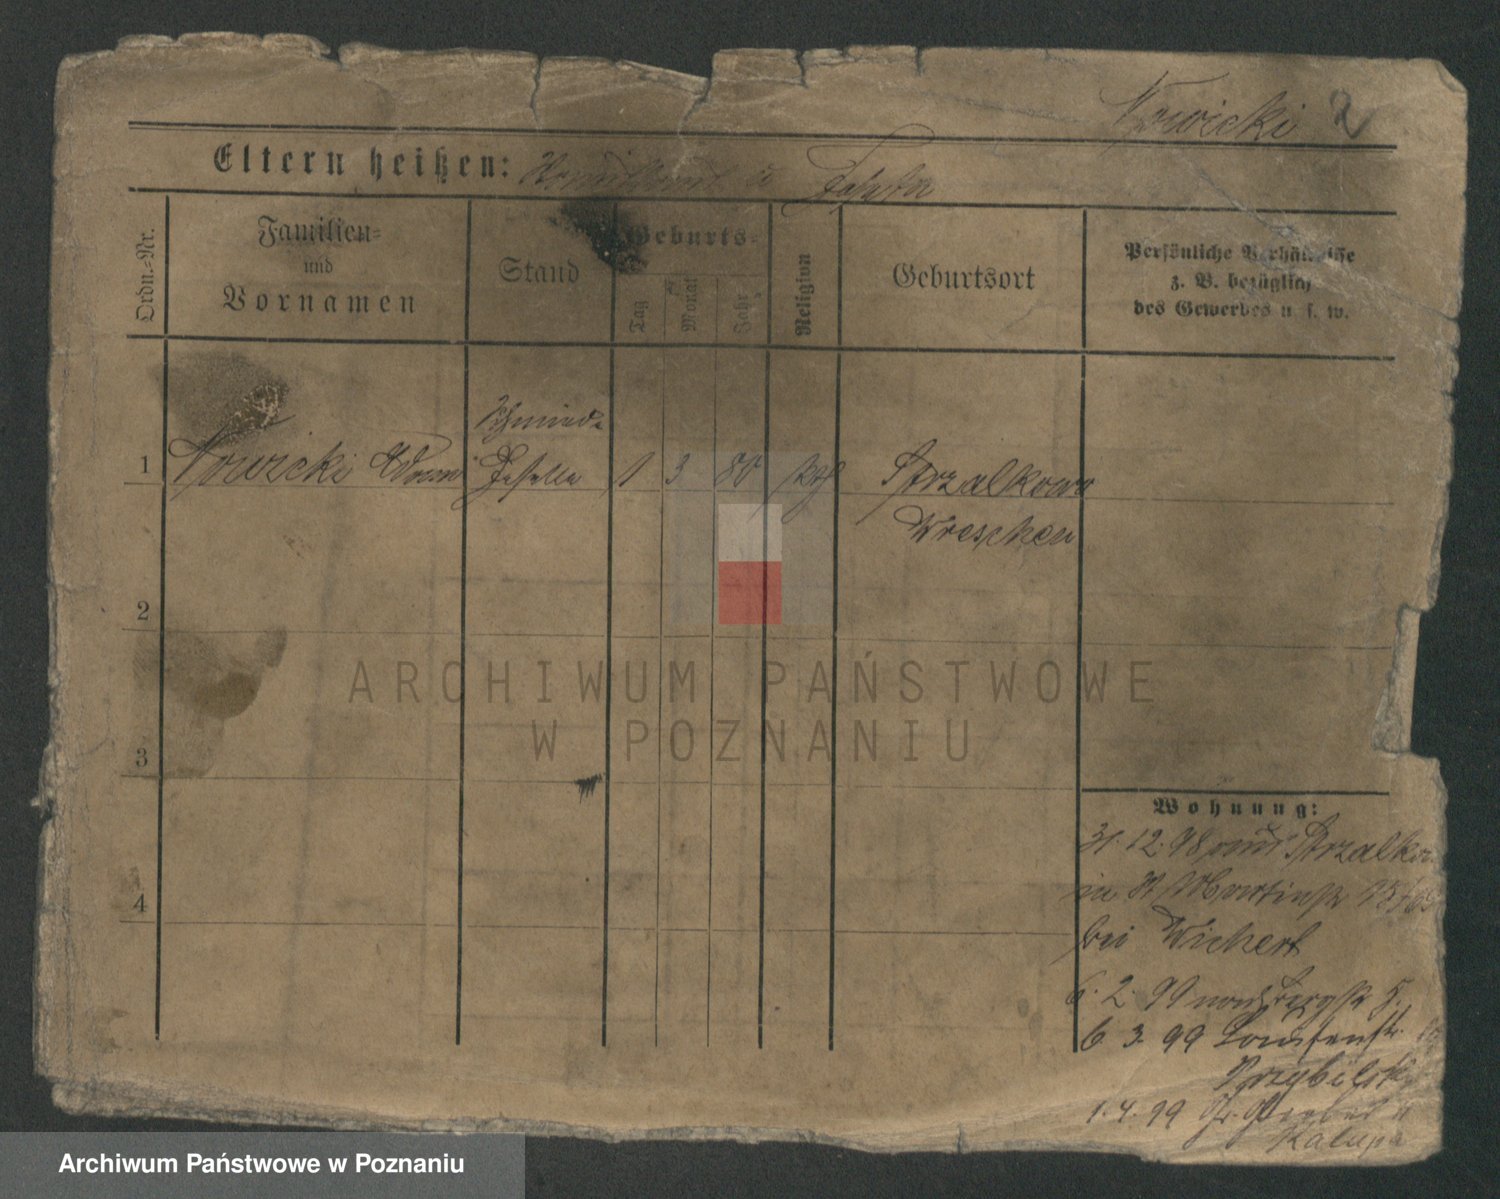 Nowicki 2
Eltern heißen: u
Ordn.-Nr.
Familien-
und
Vornamen
Stand
Geburts-
Tag
Monat
Jahr
Religion
Geburtsort
Persönliche Verhältnisse
z. B. bezüglich
des Gewerbes u. s. w.
Schmied-
1 Nowicki Adam Geselle 1 3 80 kth Strzalkowo
Wreschen
2
3
4
Wohnung:
31. 12. 98 aus Strzalkow
in St Martinstr
bei Wichert
6. 2. 99 nach Bergstr 5.
6. 3. 99
Przybilski
1. 4. 99 Gr. Gerberstr
Kalupa
ARCHIWUM PAŃSTWOWE
W POZNANIU
Archiwum Państwowe w Poznaniu